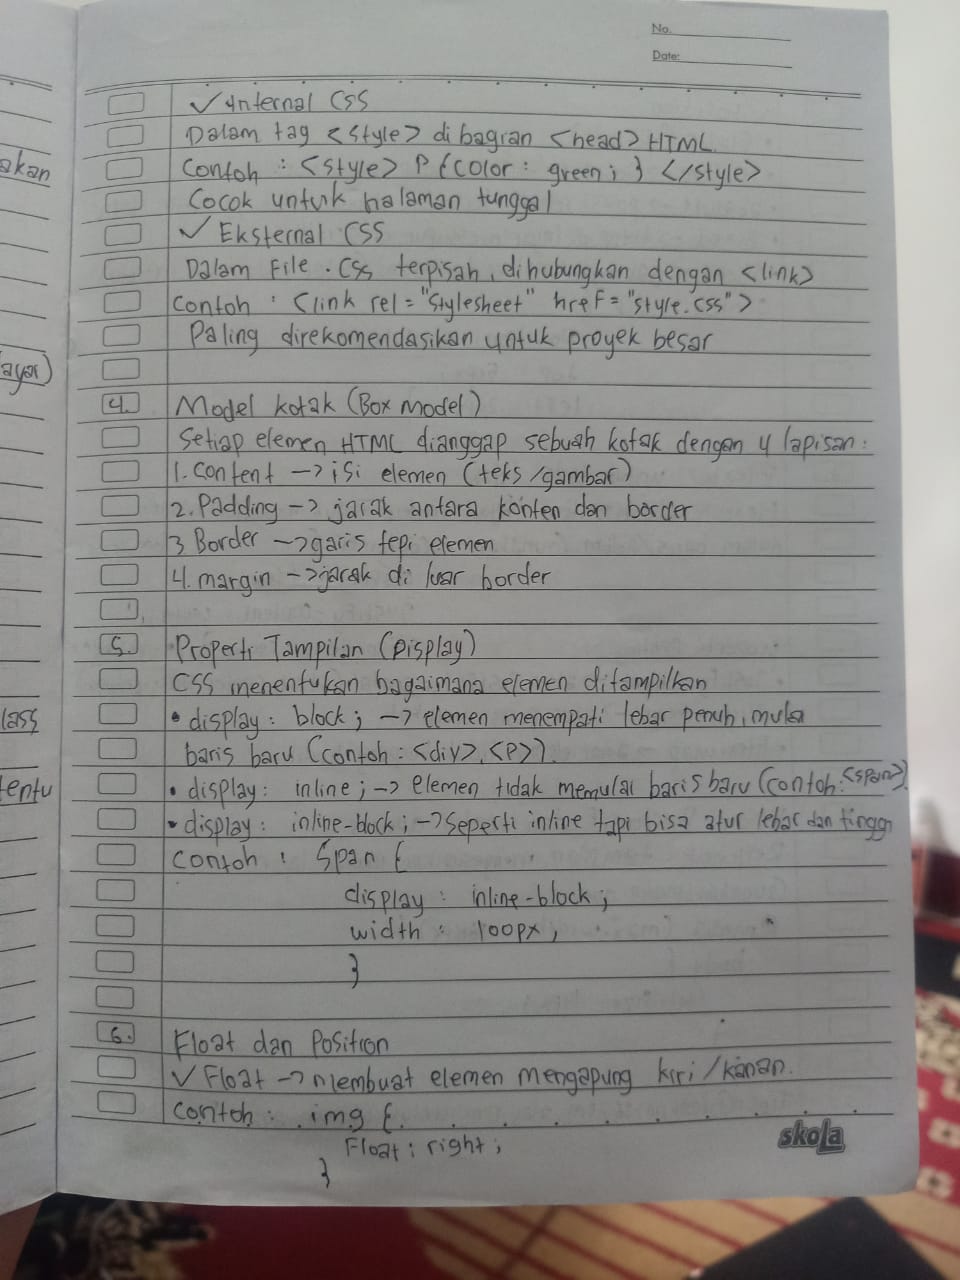 No.
Date:
✓ Internal CSS
Dalam tag <style> di bagian <head> HTML.
Contoh : <style> P {color : green; } </style>
Cocok untuk halaman tunggal
✓ Eksternal CSS
Dalam File .Css terpisah, dihubungkan dengan <link>
Contoh : <link rel = "Stylesheet" href = "style.css">
Paling direkomendasikan untuk proyek besar
4. Model kotak (Box Model)
Setiap elemen HTML dianggap sebuah kotak dengan 4 lapisan :
1. Content -> isi elemen (teks/gambar)
2. Padding -> jarak antara konten dan border
3 Border -> garis tepi elemen
4. margin -> jarak di luar border
5. Properti Tampilan (Display)
CSS menentukan bagaimana elemen ditampilkan
• display : block; -> elemen menempati lebar penuh, mulai
baris baru (contoh : <div>, <p>).
• display : inline; -> elemen tidak memulai baris baru (contoh : <span>).
• display : inline-block; -> Seperti inline tapi bisa atur lebar dan tinggi
Contoh : Span {
display : inline-block;
width : 100px;
}
6. Float dan Position
✓ Float -> membuat elemen mengapung kiri/kanan.
Contoh : img {
Float : right;
}
skola
akan
ayar)
lass
tentu